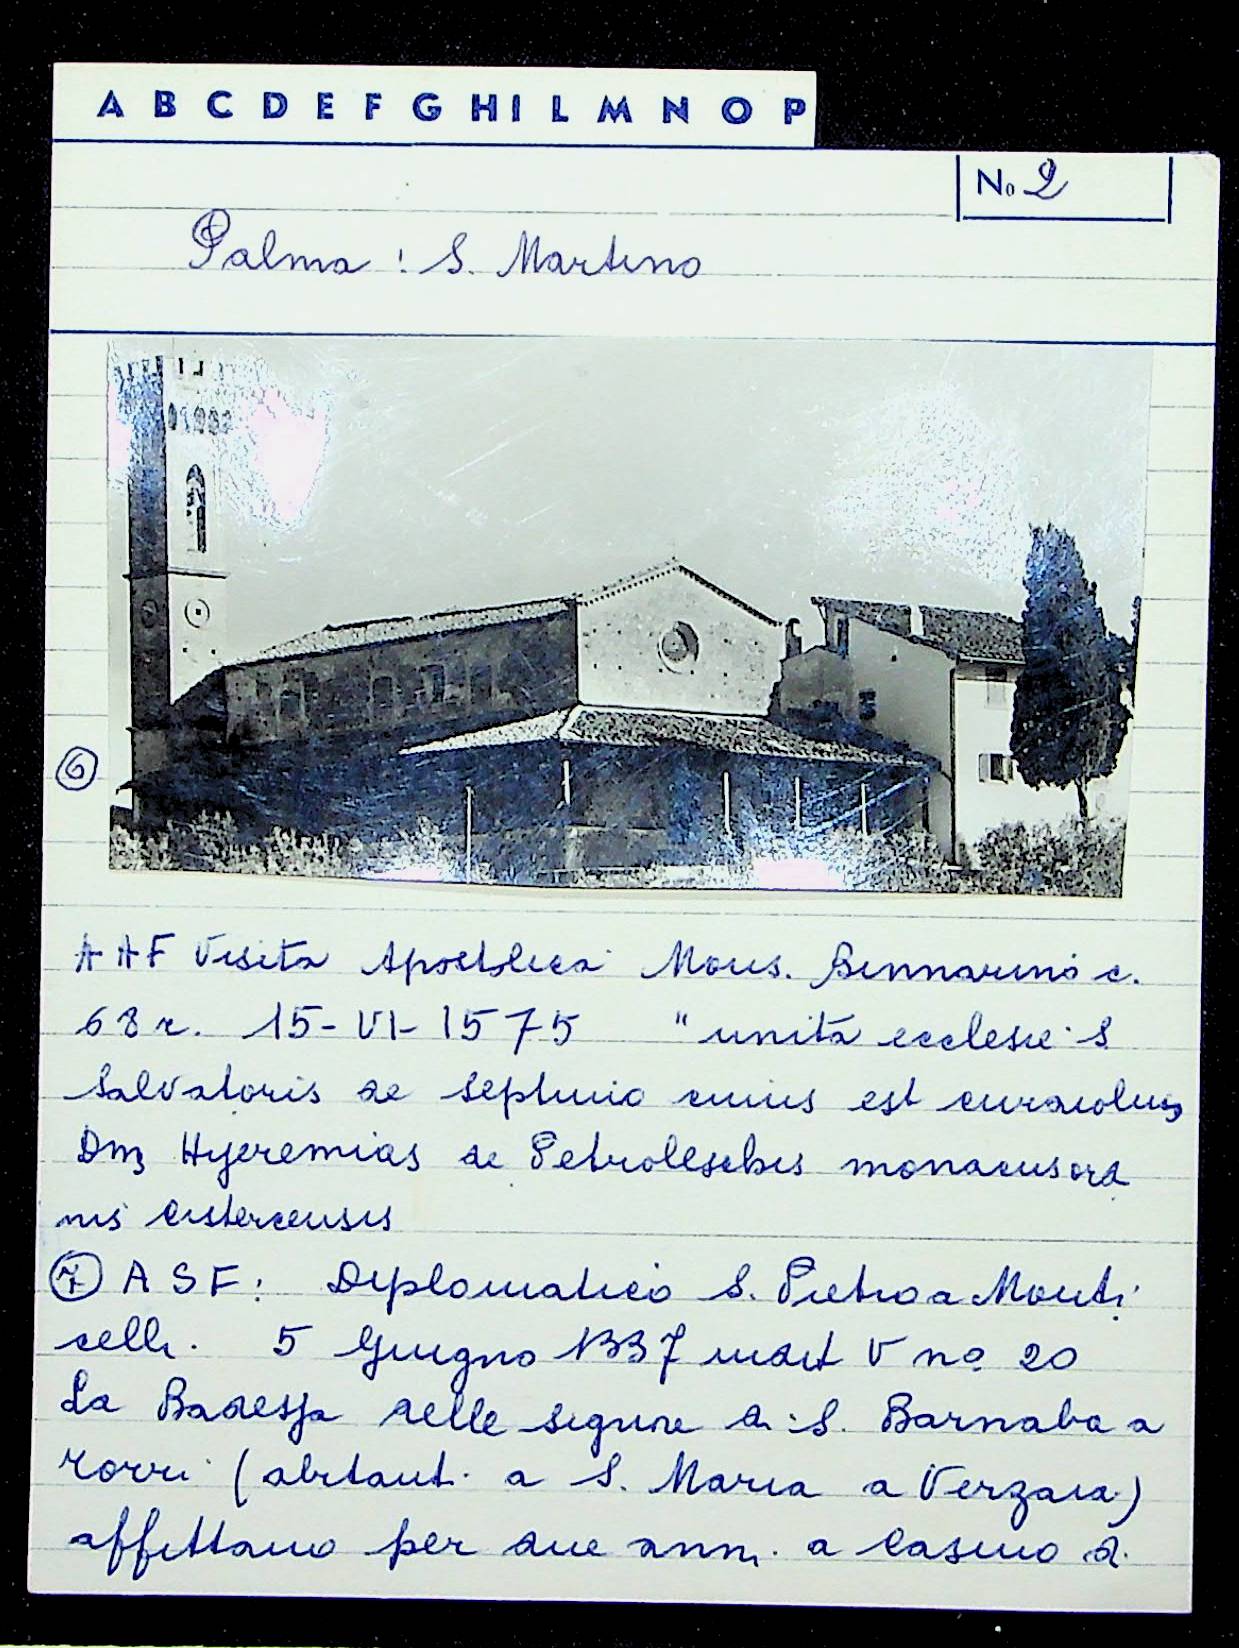 A B C D E F G H I L M N O P
No 2
Palma : S. Martino
6
A A F Visita Apostolica Mons. Binnarino c.
68 r. 15-VI-1575 "unita ecclesie S
Salvatoris de septimo cuius est
Dnz Hyeremias de monacus ord
nis cistercensis
7 A S F: Diplomatico S. Pietro a Monti
celli. 5 Giugno 1337 indit V no 20
La Badessa delle signore di S. Barnaba a
(abitanti a S. Maria a Verzaia)
affittano per due anni a Casino di